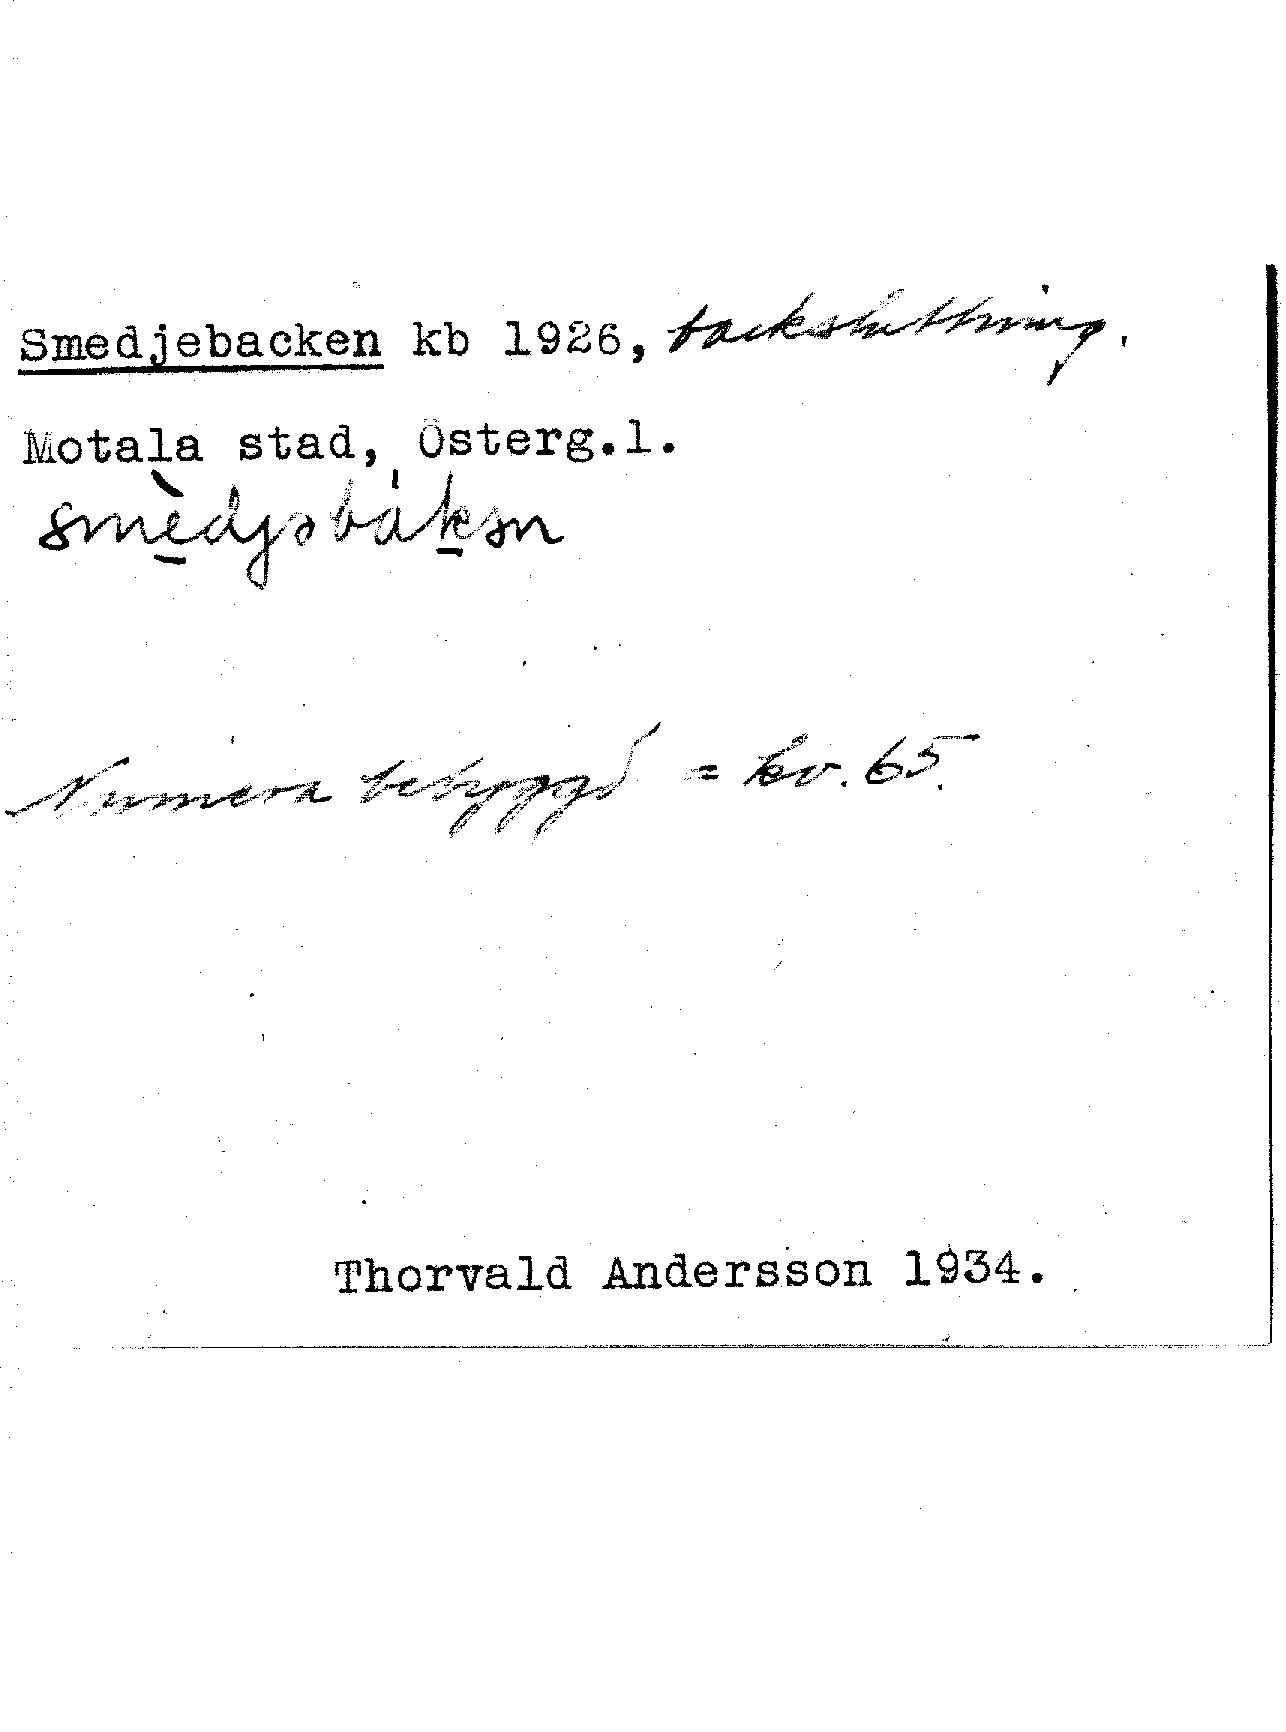 Smedjebacken kb 1926, backsluttning.
Motala stad, Österg.l.
smèdjəbákən
Numera bebyggd = kv. 65.
Thorvald Andersson 1934.